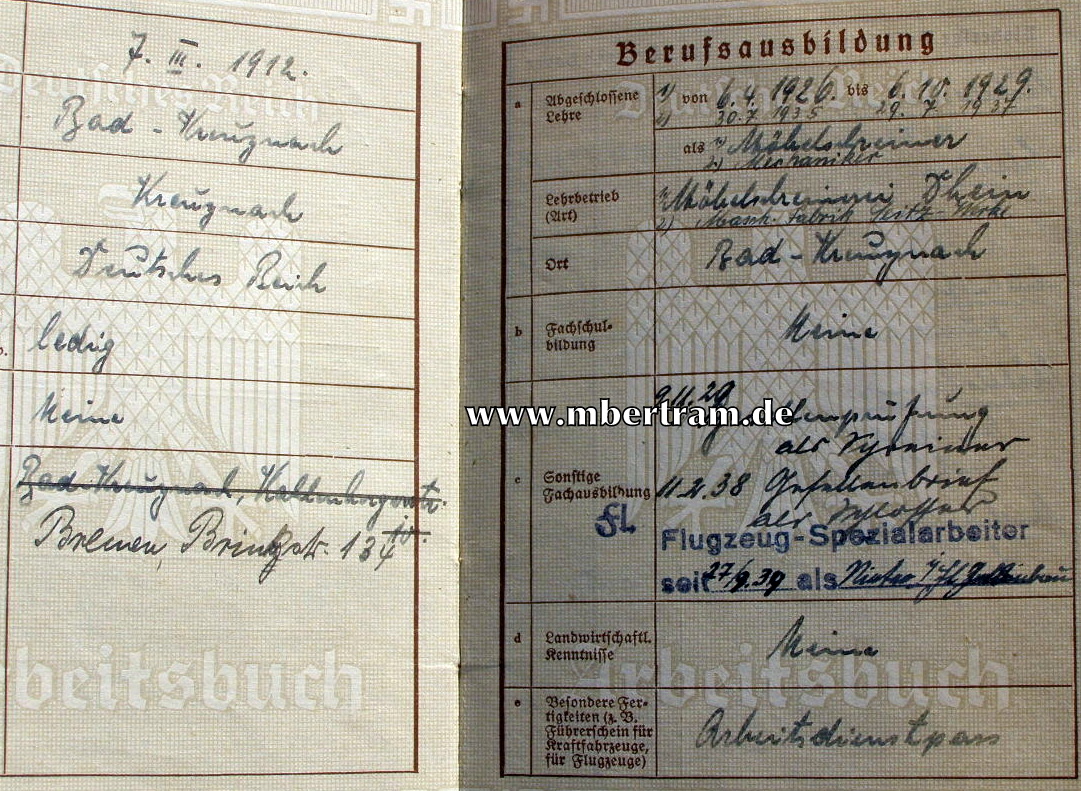 7. III. 1912.
Bad-Kreuznach
Kreuznach
Deutsches Reich
ledig
Keine
Bad Kreuznach,
Bremen, Brinkstr. 134
Berufsausbildung
a Abgeschlossene Lehre
1) von 6.4.1926. bis 6.10.1929.
2) 30.7 1935 29.7 1937
als 1) Möbelschreiner
2) Mechaniker
Lehrbetrieb (Art)
1) Möbelschreinerei Rhein
2) Masch. Fabrik Seitz-Werke
Ort Bad-Kreuznach
b Fachschulbildung Keine
www.mbertram.de
c Sonstige Fachausbildung
9.11.29
als Schreiner
11.2.38 Gesellenbrief
als Schlosser
FL
Flugzeug-Spezialarbeiter
seit 27/9.39 als Nieter
d Landwirtschaftl. Kenntnisse Keine
e Besondere Fer-
tigkeiten (z. B.
Führerschein für
Kraftfahrzeuge,
für Flugzeuge)
Arbeitsdienstpass
Deutsches Reich
Arbeitsbuch